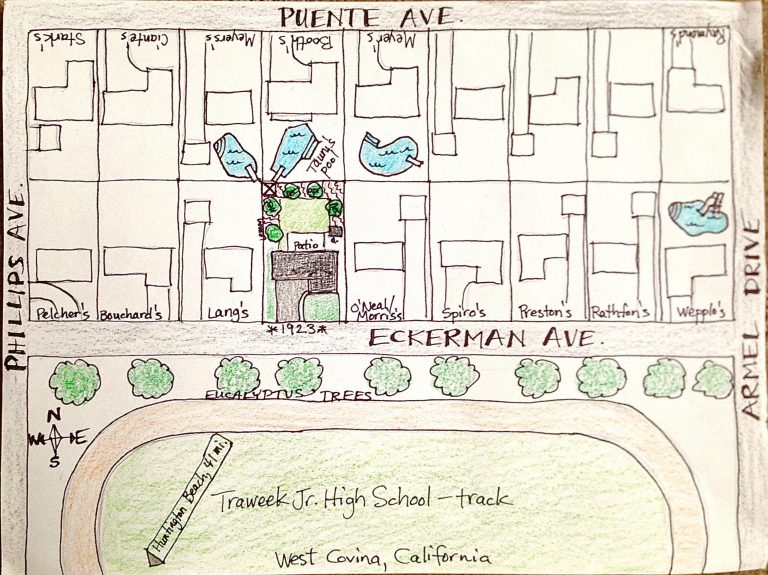 PUENTE AVE.
Stark's
Ciante's
Meyers's
Booth's
Meyer's
Raymond's
pool
PHILLIPS AVE.
ARMEL DRIVE
Patio
Pelcher's
Bouchard's
Lang's
O'Neal/
Morris's
Spiro's
Preston's
Rathfon's
Wepplo's
*1923*
ECKERMAN AVE.
EUCALYPTUS TREES
N
W E
S
Huntington Beach, 41 mi.
Traweek Jr. High School - track
West Covina, California